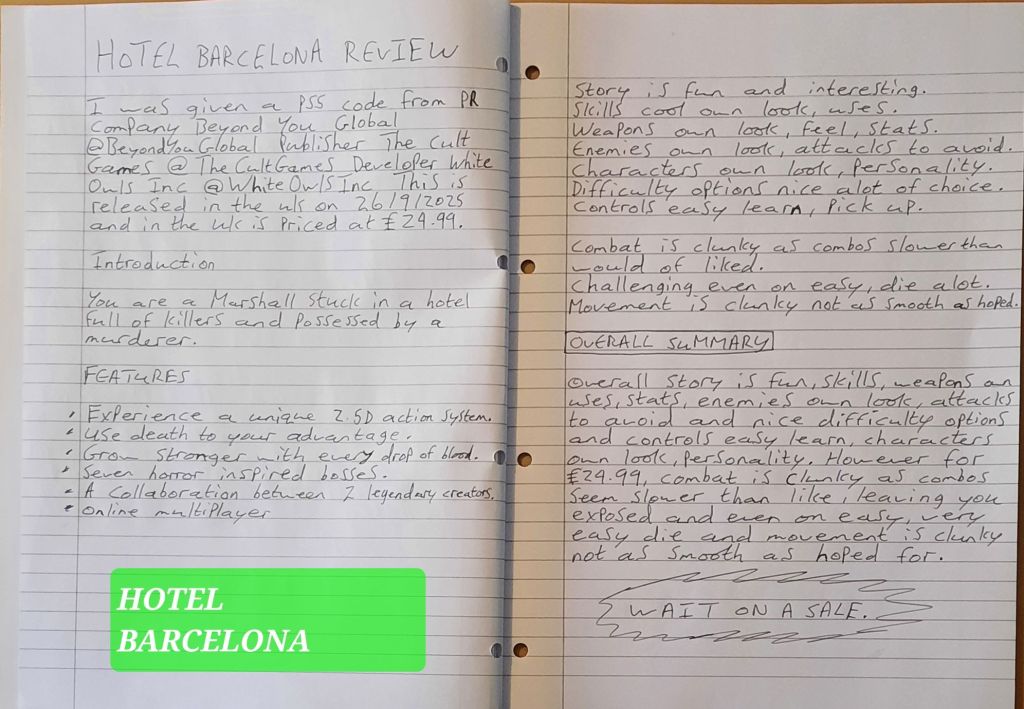 HOTEL BARCELONA REVIEW
I was given a PS5 code from PR
Company Beyond You Global
@BeyondYouGlobal Publisher The Cult
Games @TheCultGames Developer White
Owls Inc @WhiteOwlsInc This is
released in the uk on 26/9/2025
and in the uk is Priced at £29.99.
Introduction
You are a Marshall stuck in a hotel
full of killers and Possessed by a
murderer.
FEATURES
• Experience a unique 2.5D action system.
• Use death to your advantage.
• Grow stronger with every drop of blood.
• Seven horror inspired bosses.
• A Collaboration between 2 legendary creators.
• Online multiPlayer
HOTEL
BARCELONA
Story is fun and interesting.
Skills cool own look, uses.
Weapons own look, feel, stats.
Enemies own look, attacks to avoid.
Characters own look, Personality.
Difficulty options nice alot of choice.
Controls easy learn, Pick up.
Combat is clunky as combos slower than
would of liked.
Challenging even on easy, die alot.
Movement is clunky not as smooth as hoped.
OVERALL SUMMARY
Overall Story is fun, skills, weapons own
uses, stats, enemies own look, attacks
to avoid and nice difficulty options
and controls easy learn, characters
own look, Personality. However for
£29.99, combat is clunky as combos
seem slower than like, leaving you
exposed and even on easy, very
easy die and movement is clunky
not as smooth as hoped for.
WAIT ON A SALE.